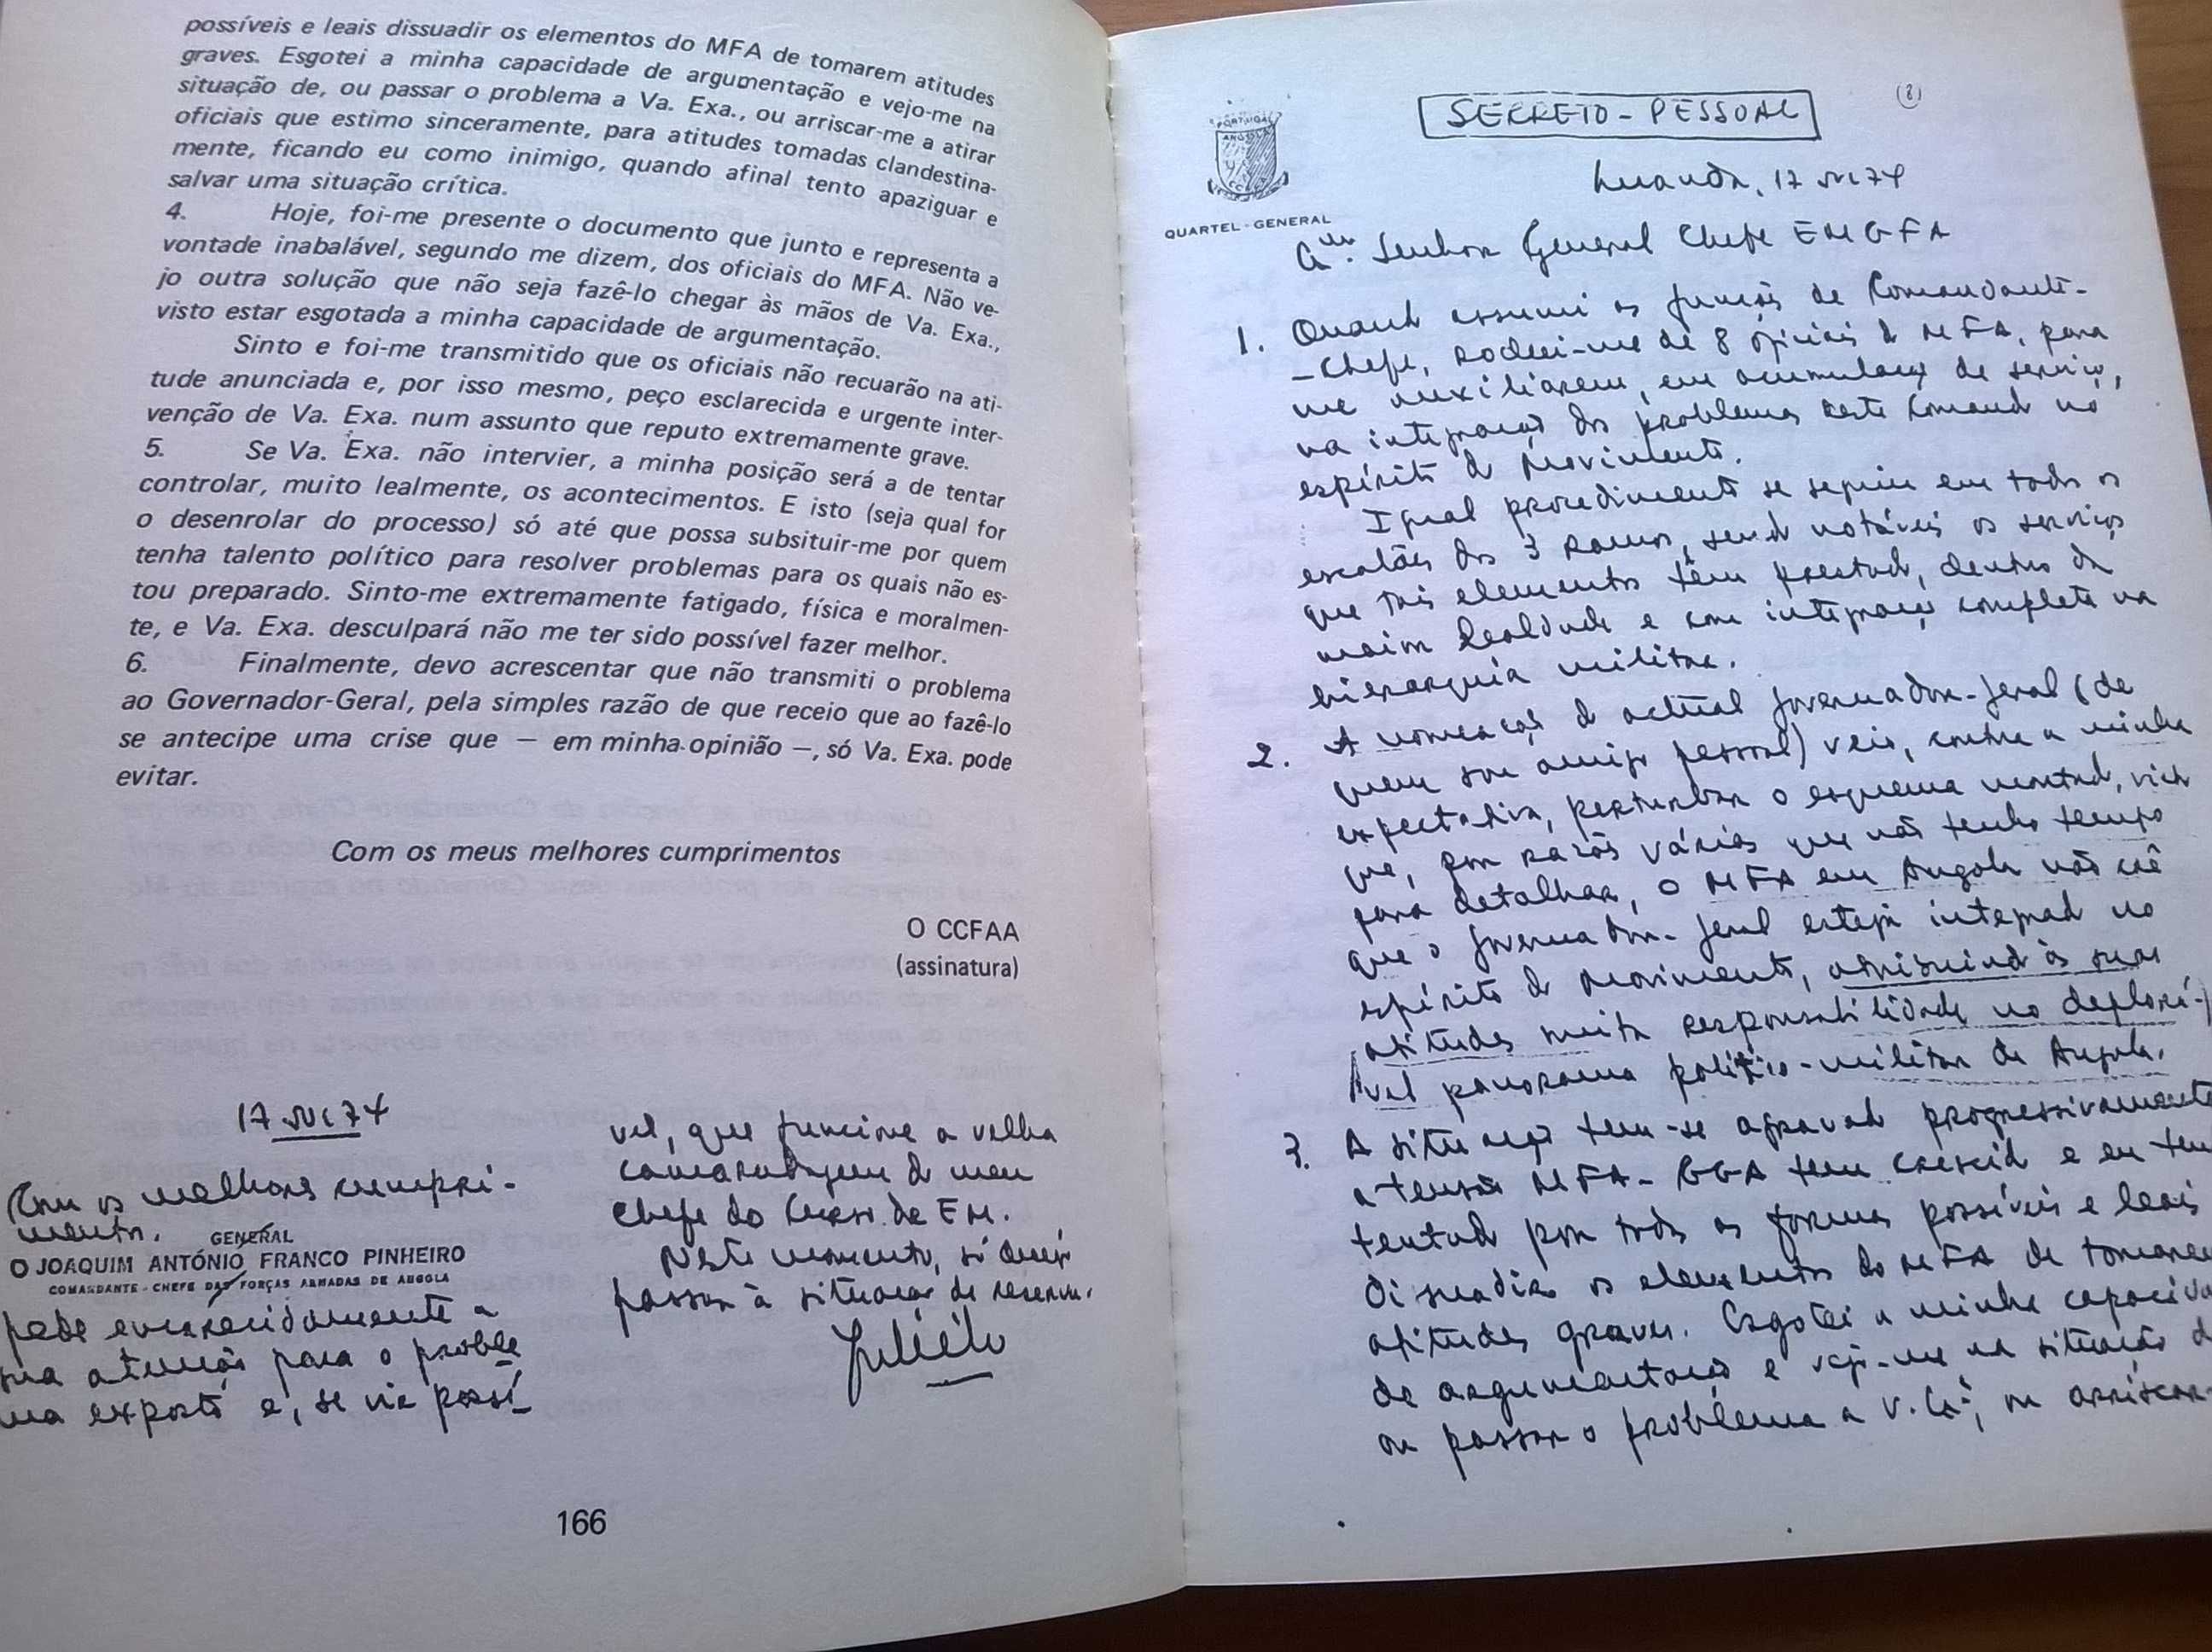 possíveis e leais dissuadir os elementos do MFA de tomarem atitudes
graves. Esgotei a minha capacidade de argumentação e vejo-me na
situação de, ou passar o problema a Va. Exa., ou arriscar-me a atirar
oficiais que estimo sinceramente, para atitudes tomadas clandestina-
mente, ficando eu como inimigo, quando afinal tento apaziguar e
salvar uma situação crítica.
4. Hoje, foi-me presente o documento que junto e representa a
vontade inabalável, segundo me dizem, dos oficiais do MFA. Não ve-
jo outra solução que não seja fazê-lo chegar às mãos de Va. Exa.,
visto estar esgotada a minha capacidade de argumentação.
Sinto e foi-me transmitido que os oficiais não recuarão na ati-
tude anunciada e, por isso mesmo, peço esclarecida e urgente inter-
venção de Va. Exa. num assunto que reputo extremamente grave.
5. Se Va. Exa. não intervier, a minha posição será a de tentar
controlar, muito lealmente, os acontecimentos. E isto (seja qual for
o desenrolar do processo) só até que possa subsituir-me por quem
tenha talento político para resolver problemas para os quais não es-
tou preparado. Sinto-me extremamente fatigado, física e moralmen-
te, e Va. Exa. desculpará não me ter sido possível fazer melhor.
6. Finalmente, devo acrescentar que não transmiti o problema
ao Governador-Geral, pela simples razão de que receio que ao fazê-lo
se antecipe uma crise que — em minha opinião —, só Va. Exa. pode
evitar.
Com os meus melhores cumprimentos
O CCFAA
(assinatura)
Com os melhores cumpri-
mentos.
GENERAL
O JOAQUIM ANTÓNIO FRANCO PINHEIRO
COMANDANTE - CHEFE DAS FORÇAS ARMADAS DE ANGOLA
pede encarecidamente a
sua atenção para o proble
ma exposto e, se vir possí-
vel, que funcione a velha
camaradagem do meu
Chefe do Curso de EM.
Neste momento, só desejo
passar à situação de reserva.
166
(8)
SECRETO - PESSOAL
PORTUGAL
ANGOLA
QUARTEL - GENERAL
Luanda, 17 74
Senhor General Chefe EMGFA
1. Quando assumi as funções de Comandante-
-Chefe, rodeei-me de 8 oficiais do MFA, para
me auxiliarem, em acumulação de serviço,
na integração dos problemas deste Comando no
espírito do Movimento.
Igual procedimento se seguiu em todos os
escalões dos 3 ramos, sendo notáveis os serviços
que tais elementos têm prestado, dentro da
maior lealdade e com integração completa na
hierarquia militar.
2. A nomeação do actual Governador-Geral (de
quem sou amigo pessoal) veio, contra a minha
expectativa, perturbar o esquema montado, visto
que, por razões várias que não tenho tempo
para detalhar, o MFA em Angola não crê
que o Governador-Geral esteja integrado no
espírito do Movimento, atribuindo às suas
atitudes muita responsabilidade no deplorá-
vel panorama político-militar de Angola.
3. A situação tem-se agravado progressivamente
a tensão MFA - GGA tem crescido e eu tenh
tentado por todas as formas possíveis e leais
dissuadir os elementos do MFA de tomarem
atitudes graves. Esgotei a minha capacida
de argumentação e vejo-me na situação d
ou passar o problema a V. Exª, ou arriscar-